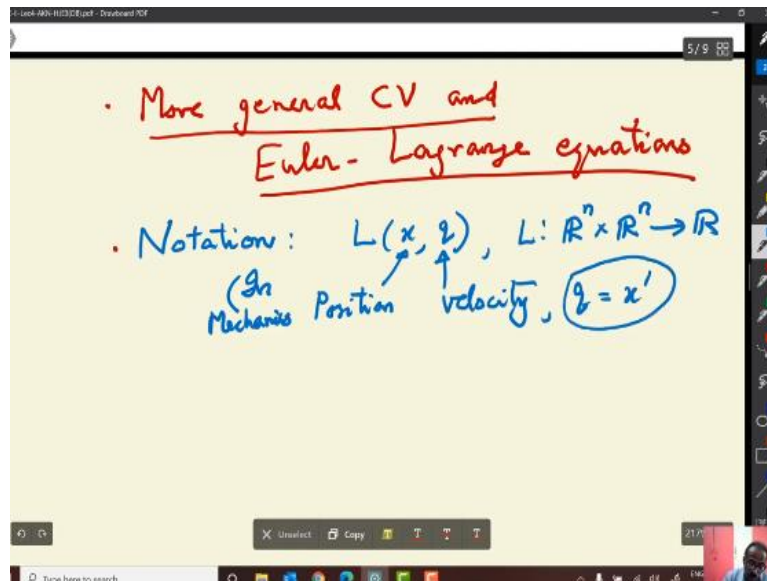 -I-Lec4-AKN-HJE(DE).pdf - Drawboard PDF
5/9
. More general CV and
Euler- Lagrange equations
. Notation: L(x, q), L: ℝⁿ × ℝⁿ → ℝ
(In Mechanics Position velocity, q = x'
X Unselect Copy T T T T
217%
Type here to search
ENG